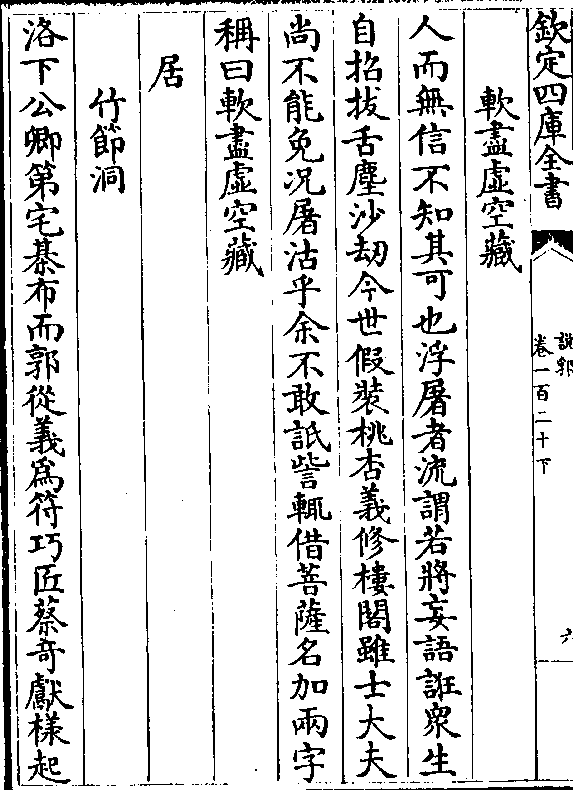 欽定四庫全書
說郛
卷一百二十下
六
軟盡虛空藏
人而無信不知其可也浮屠者流謂若將妄語誑衆生
自招拔舌塵沙劫今世假裝桃杏義修樓閣雖士大夫
尚不能免況屠沽乎余不敢詆訾輒借菩薩名加兩字
稱曰軟盡虛空藏
居
竹節洞
洛下公卿第宅棊布而郭從義爲符巧匠蔡竒獻様起